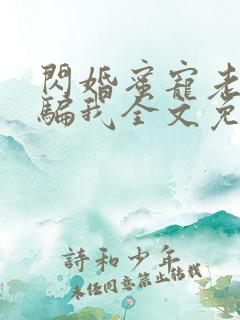 閃婚蜜寵老
騙我全文免
詩和少年
未經同意禁止轉載